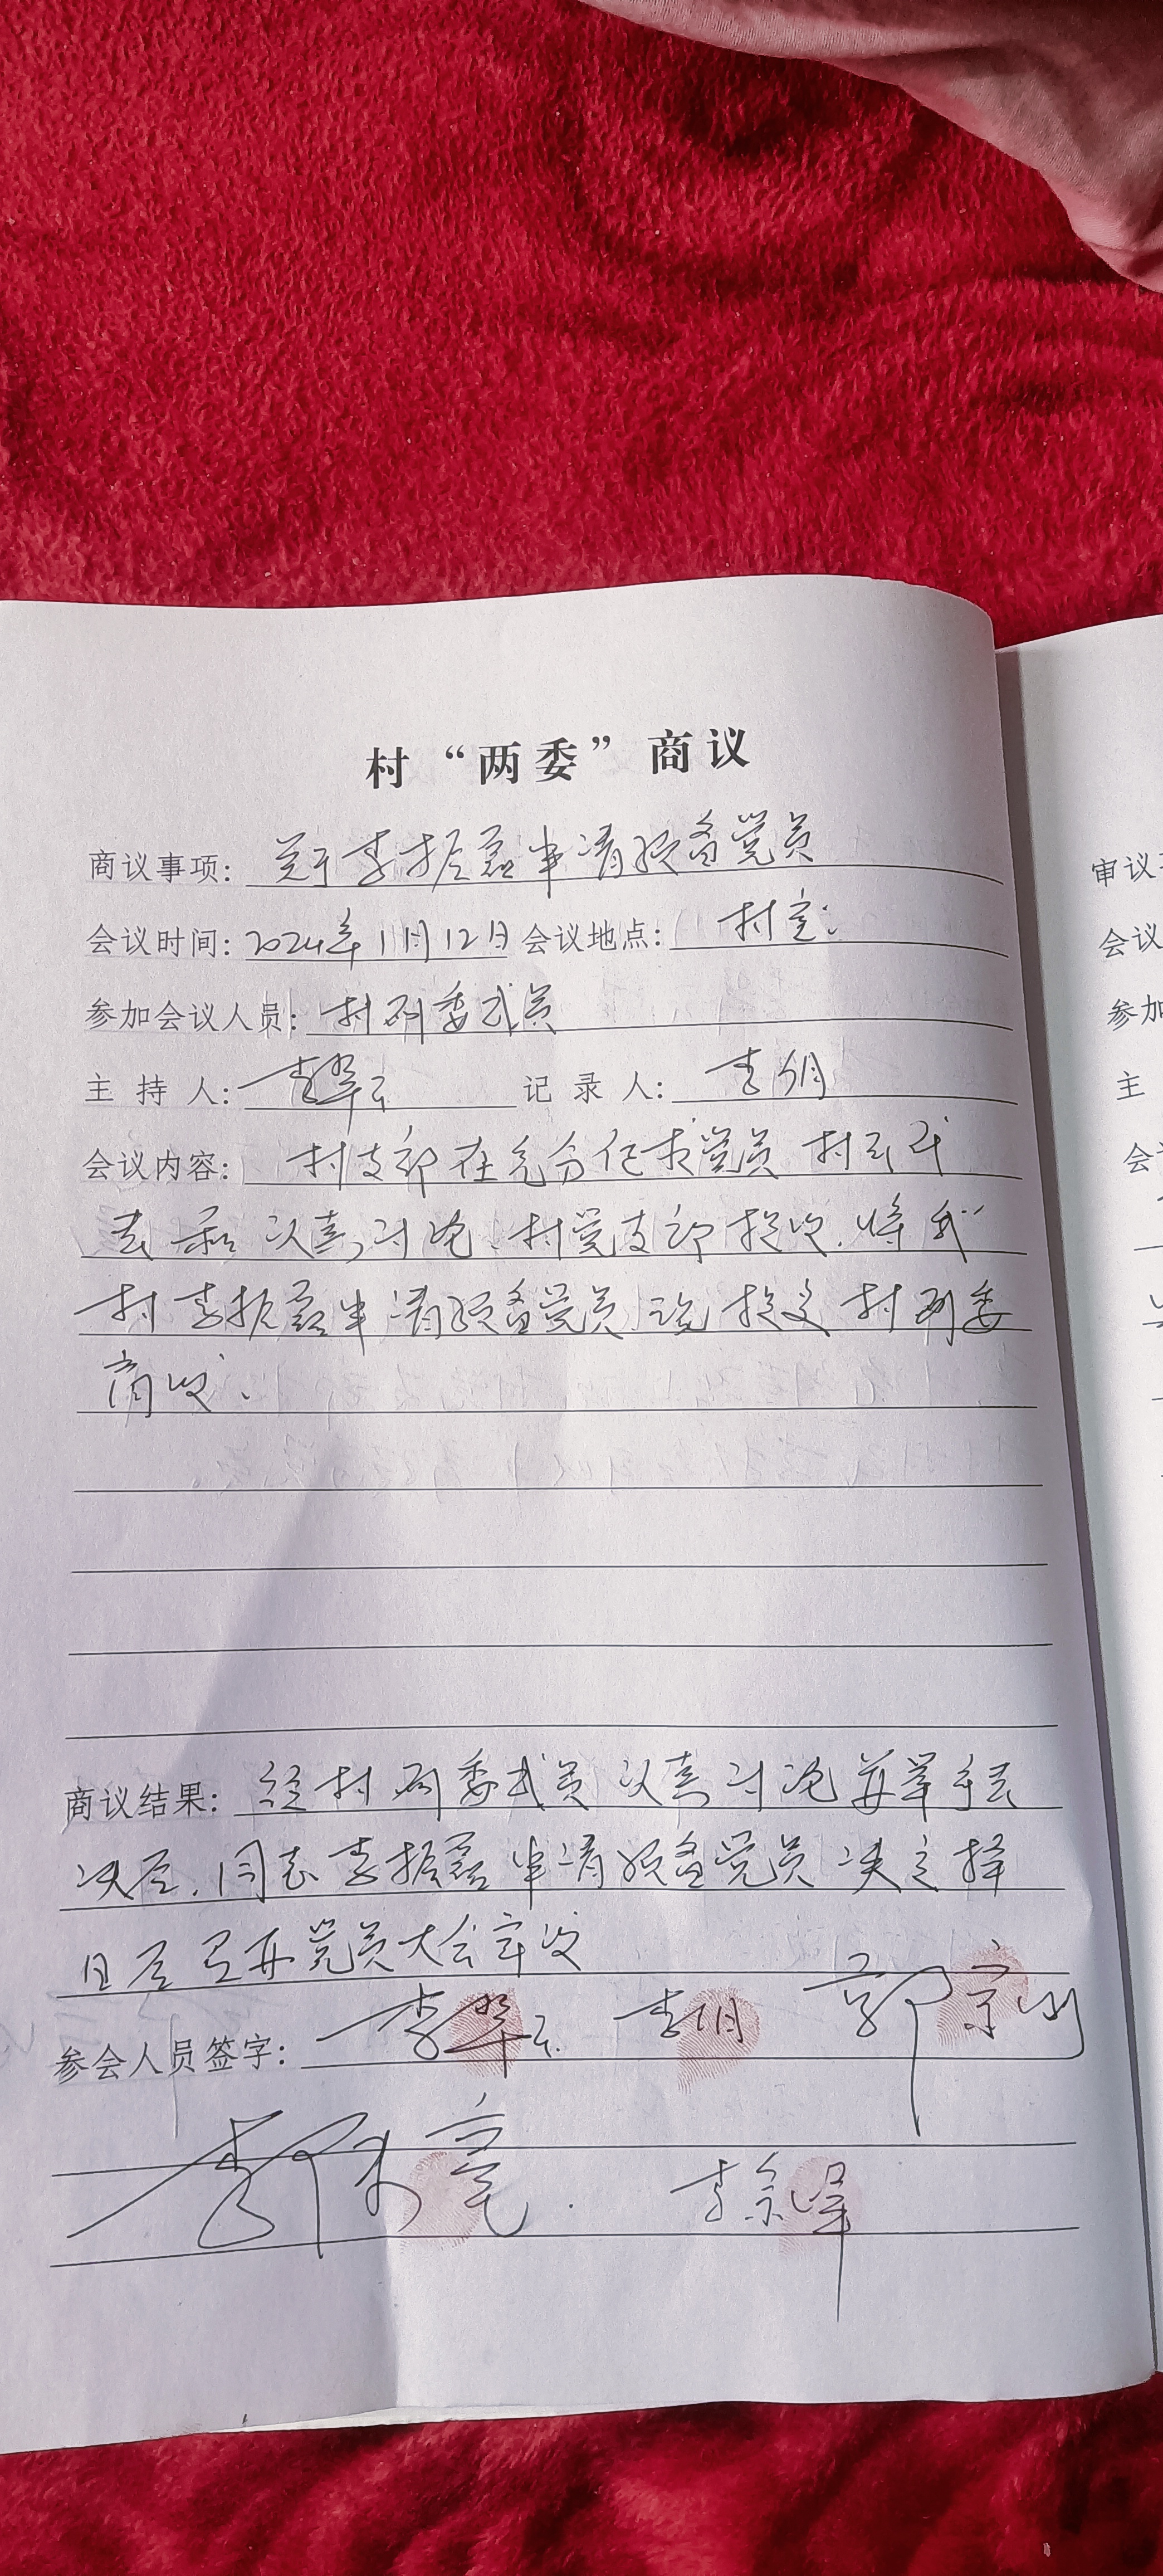 村“两委”商议
商议事项: 关于李振磊申请预备党员
会议时间: 2024年11月12日 会议地点: 村室
参加会议人员: 村两委成员
主持人: 李翠云 记录人: 李明
会议内容: 村支部在充分征求党员 村民代
表和认真讨论, 村党支部提议, 将我
村李振磊申请预备党员 提交村两委
商议.
商议结果: 经村两委成员认真讨论并举手表
决后, 同意李振磊申请预备党员 决定择
日后召开党员大会审议
参会人员签字: 李翠云 李明 郭宗
李 亮 李宗峰
审议
会议
参加
主
会